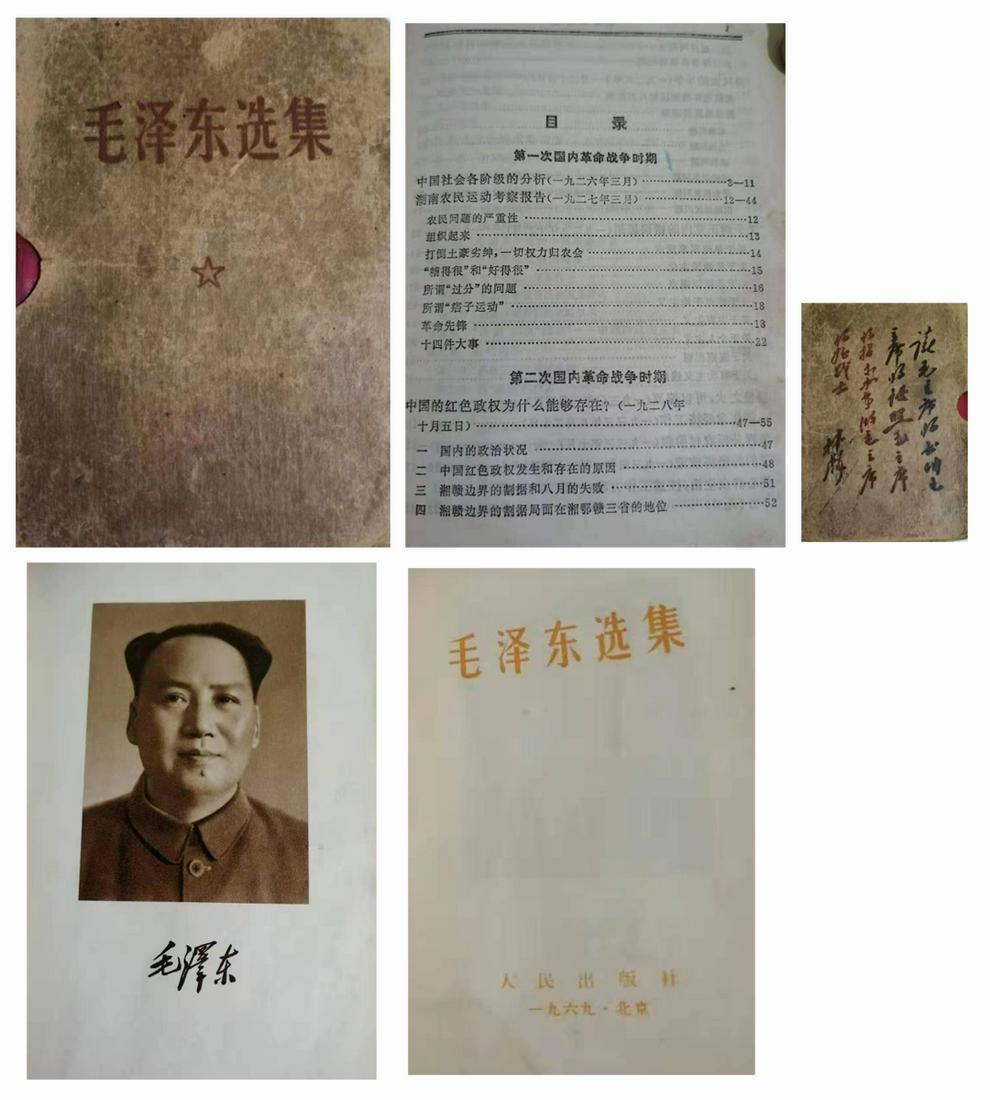 毛泽东选集
1
目 录
第一次国内革命战争时期
中国社会各阶级的分析(一九二六年三月)……3—11
湖南农民运动考察报告(一九二七年三月)……12—44
农民问题的严重性……12
组织起来……13
打倒土豪劣绅,一切权力归农会……14
“糟得很”和“好得很”……15
所谓“过分”的问题……16
所谓“痞子运动”……18
革命先锋……18
十四件大事……22
第二次国内革命战争时期
中国的红色政权为什么能够存在?(一九二八年
十月五日)……47—55
一 国内的政治状况……47
二 中国红色政权发生和存在的原因……48
三 湘赣边界的割据和八月的失败……51
四 湘赣边界的割据局面在湘鄂赣三省的地位……52
读毛主席的书听毛
主席的话照毛主席
的指示办事做毛主席
的好战士
林彪
毛澤东
毛泽东选集
人民出版社
一九六九·北京